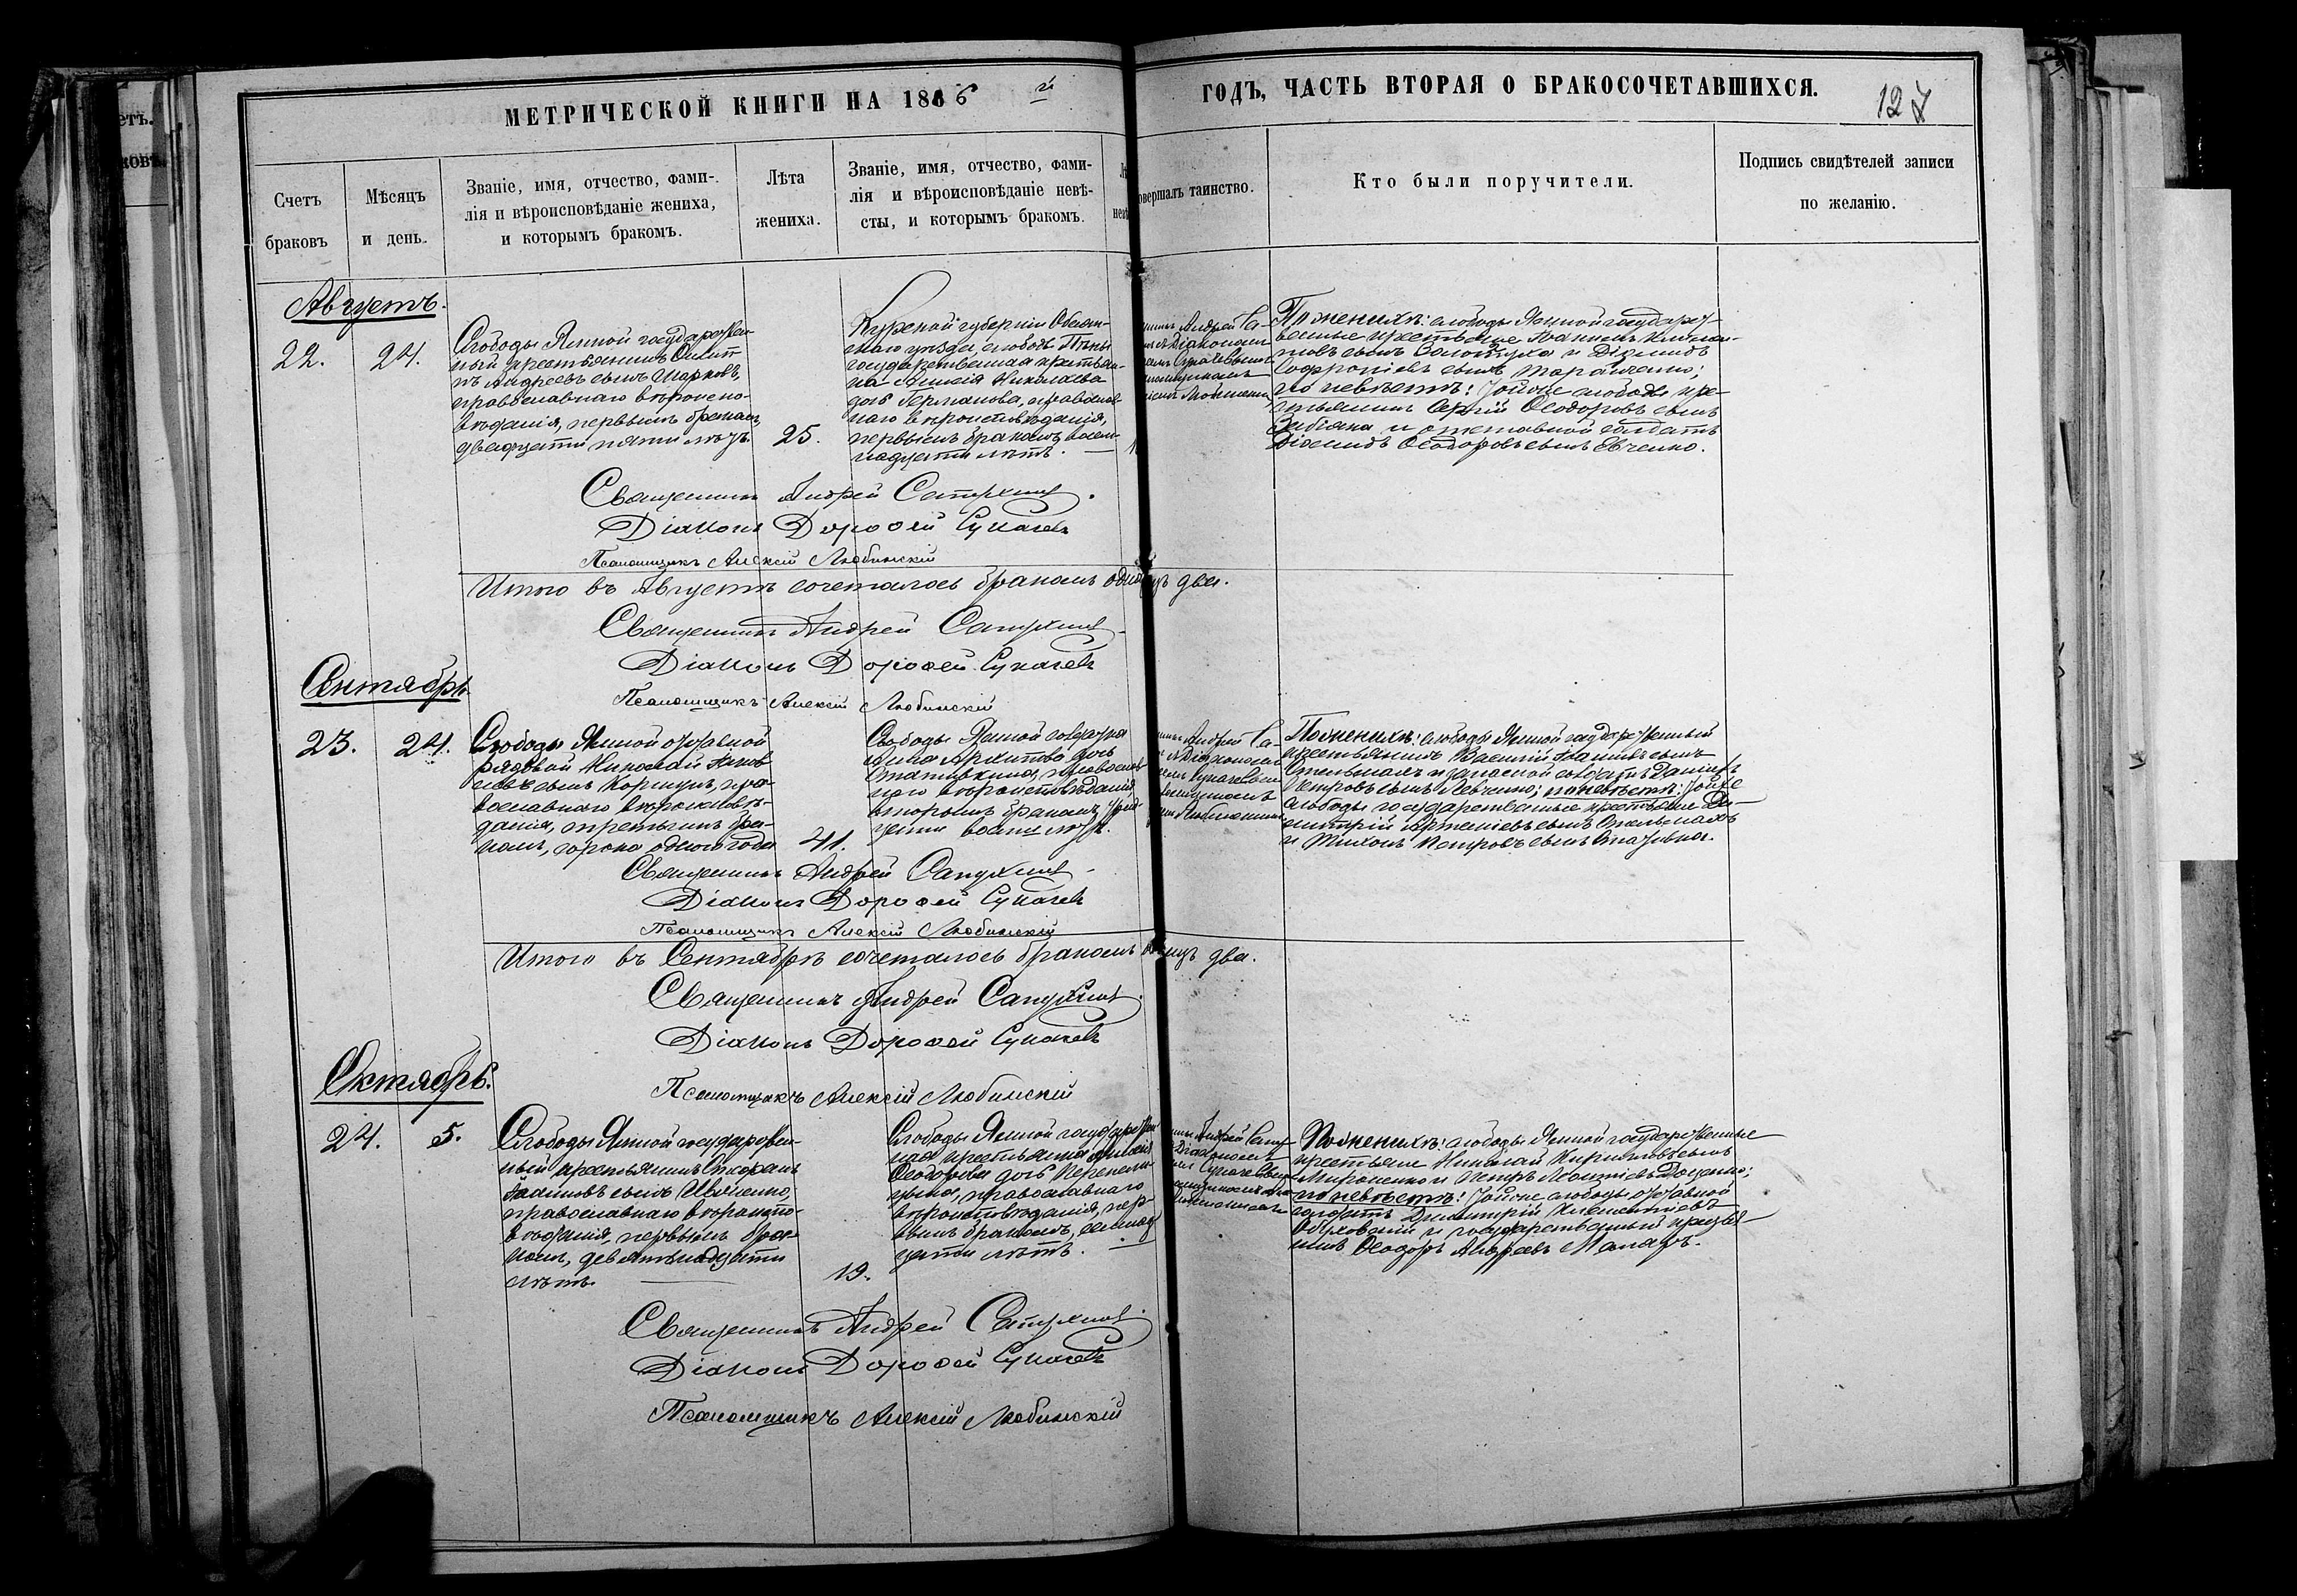 МЕТРИЧЕСКОЙ КНИГИ НА 1886 й
ГОДЪ, ЧАСТЬ ВТОРАЯ О БРАКОСОЧЕТАВШИХСЯ.
127
Счетъ
браковъ
Мѣсяцъ
и день.
Званіе, имя, отчество, фами-
лія и вѣроисповѣданіе жениха,
и которымъ бракомъ.
Лѣта
жениха.
Званіе, имя, отчество, фами-
лія и вѣроисповѣданіе невѣ-
сты, и которымъ бракомъ.
овершалъ таинство.
Кто были поручители.
Подпись свидѣтелей записи
по желанію.
Августъ.
22.
24.
Слободы Ямной государствен-
ный крестьянинъ
Андреевъ сынъ Марковъ,
православнаго вѣроиспо-
вѣданія, первымъ бракомъ,
двадцати пяти лѣтъ
25.
Курской губерніи Обоян-
скаго уѣзда, слободы Пѣны
государственная крестьян-
ка Николаева
дочь Германова, православ-
наго вѣроисповѣданія,
первымъ бракомъ, восем-
надцати лѣтъ.
Андрей Са-
Діакономъ
Сукачевымъ
Любинскимъ
По женихѣ: слободы Ямной государст-
венные крестьяне
сынъ и Діомидъ
Софроніевъ сынъ Таранченко;
по невѣстѣ: тойже слободы кре-
стьянинъ Сергій Ѳеодоровъ сынъ
и отставной солдатъ
Діомидъ Ѳеодоровъ сынъ Евченко.
Священникъ Андрей Сапухинъ.
Діаконъ Дороѳей Сукачевъ
Псаломщикъ Алексій Любинскій
Итого въ Августѣ сочеталось бракомъ два.
Священникъ Андрей Сапухинъ
Діаконъ Дороѳей Сукачевъ
Псаломщикъ Алексій Любинскій
Сентябрь
23.
24.
Слободы Ямной отставной
рядовой Николай Яков
левъ сынъ Коршунъ, пра-
вославнаго вѣроисповѣ-
данія, третьимъ бра-
комъ, сорока одного года
41.
Слободы Ямной солдатка
Архипова дочь
православ
наго вѣроисповѣданія,
вторымъ бракомъ, трид-
цати восьми лѣтъ.
Андрей Са-
Діакономъ
Сукачевымъ
Любинскимъ
По женихѣ: слободы Ямной государственный
крестьянинъ Василій сынъ
Стельмахъ и запасной солдатъ Даніилъ
Петровъ сынъ Левченко; по невѣстѣ: тойже
слободы государственные крестьяне Ди-
митрій Артеміевъ сынъ Стельмахъ
и Тихонъ Петровъ сынъ
Священникъ Андрей Сапухинъ
Діаконъ Дороѳей Сукачевъ
Псаломщикъ Алексій Любинскій
Итого въ Сентябрѣ сочеталось бракомъ два.
Священникъ Андрей Сапухинъ.
Діаконъ Дороѳей Сукачевъ
Псаломщикъ Алексій Любинскій
Октябрь.
24.
5.
Слободы Ямной государствен-
ный крестьянинъ Стефанъ
сынъ Ивченко,
православнаго вѣроиспо-
вѣданія, первымъ бра-
комъ, девятнадцати
лѣтъ.
19.
Слободы Ямной государствен
ная крестьянка
Ѳеодорова дочь
православнаго
вѣроисповѣданія, пер-
вымъ бракомъ,
цати лѣтъ.
Андрей Сапу-
Діакономъ
Сукачевымъ
По женихѣ: слободы Ямной государственные
крестьяне Николай Кирилловъ сынъ
Мироненко и Петръ Доценко;
по невѣстѣ: тойже слободы отставной
солдатъ Димитрій
и государственный крестья-
нинъ Ѳеодоръ Андреевъ
Священникъ Андрей Сапухинъ
Діаконъ Дороѳей Сукачевъ
Псаломщикъ Алексій Любинскій